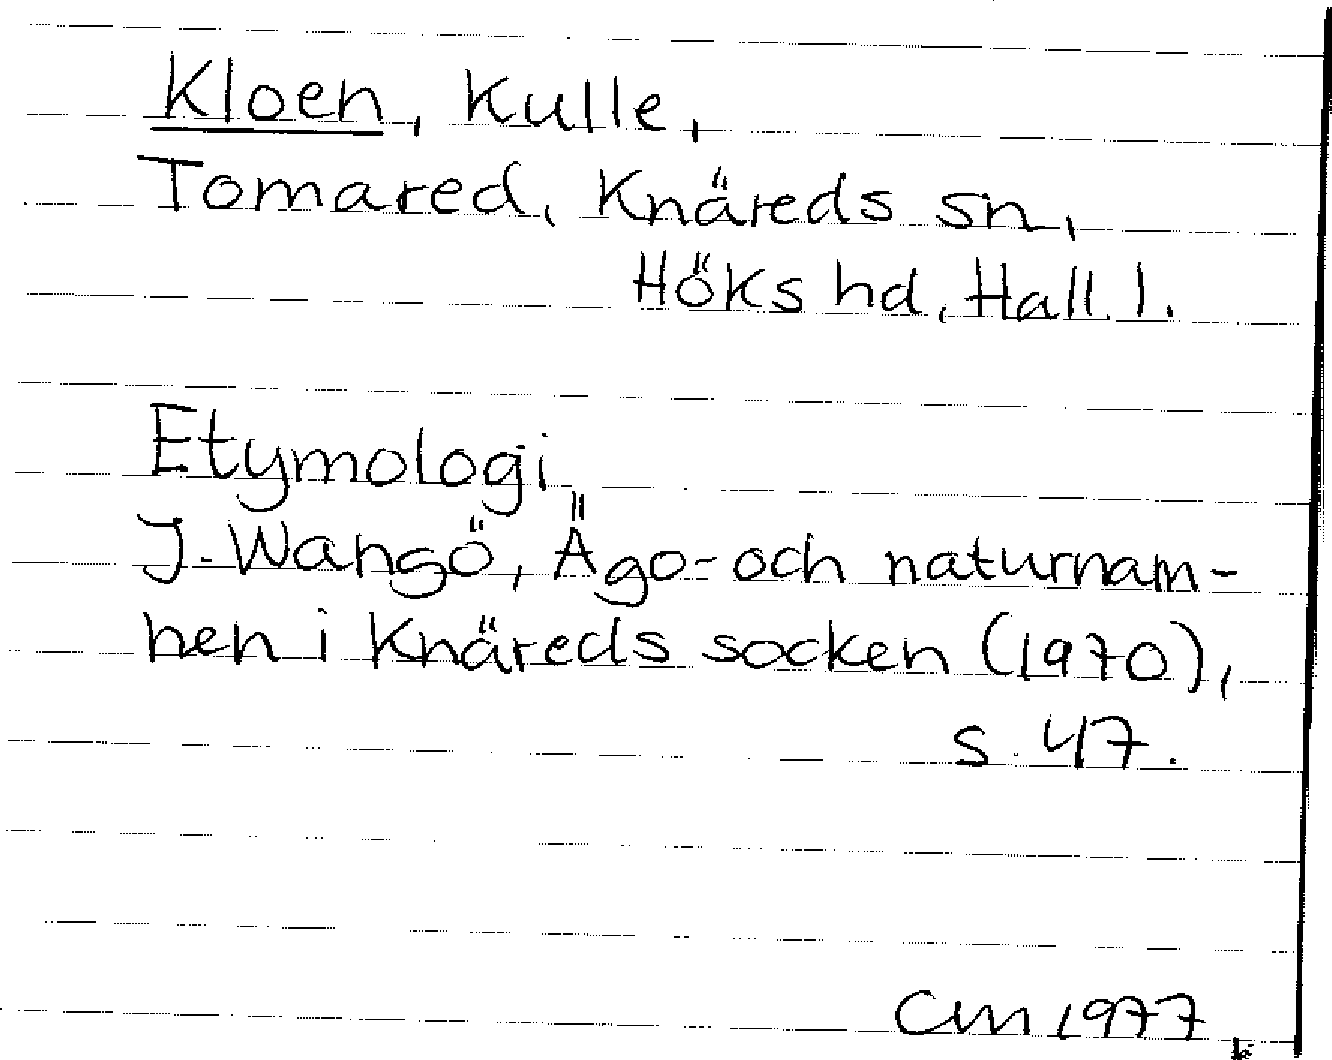 Kloen, Kulle,
Tomared, Knäreds sn,
Höks hd, Hall. l.
Etymologi
J. Wangö, Ägo- och naturnam-
nen i Knäreds socken (1970),
s. 47.
CM 1977